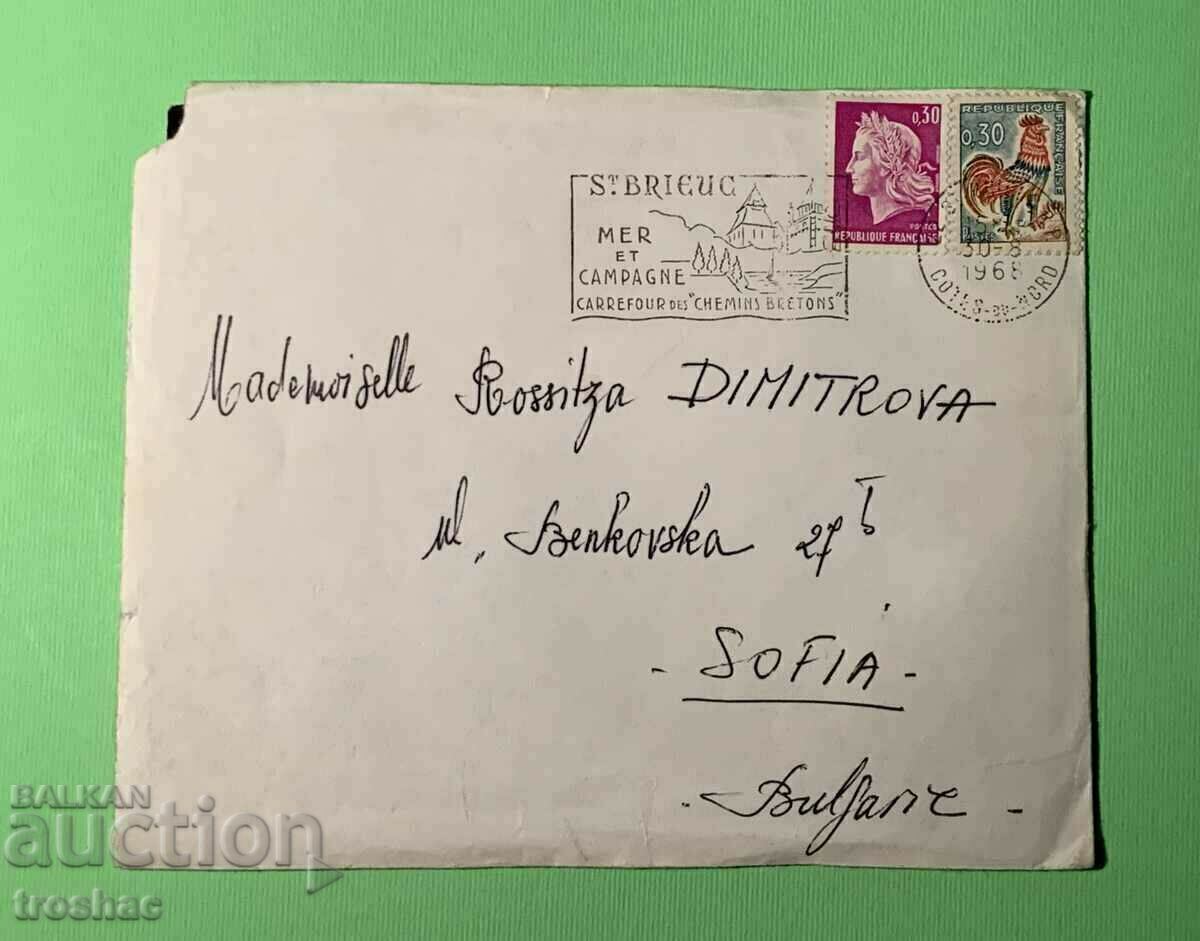 0,30
REPUBLIQUE FRANÇAISE
REPUBLIQUE FRANÇAISE
0,30
POSTES
ST BRIEUC
MER
ET
CAMPAGNE
CARREFOUR DES "CHEMINS BRETONS"
30-8
1968
COTES-DU-NORD
Mademoiselle Rossitza DIMITROVA
ul. Benkovska 27
- SOFIA -
- Bulgarie -
BALKAN
auction
troshac